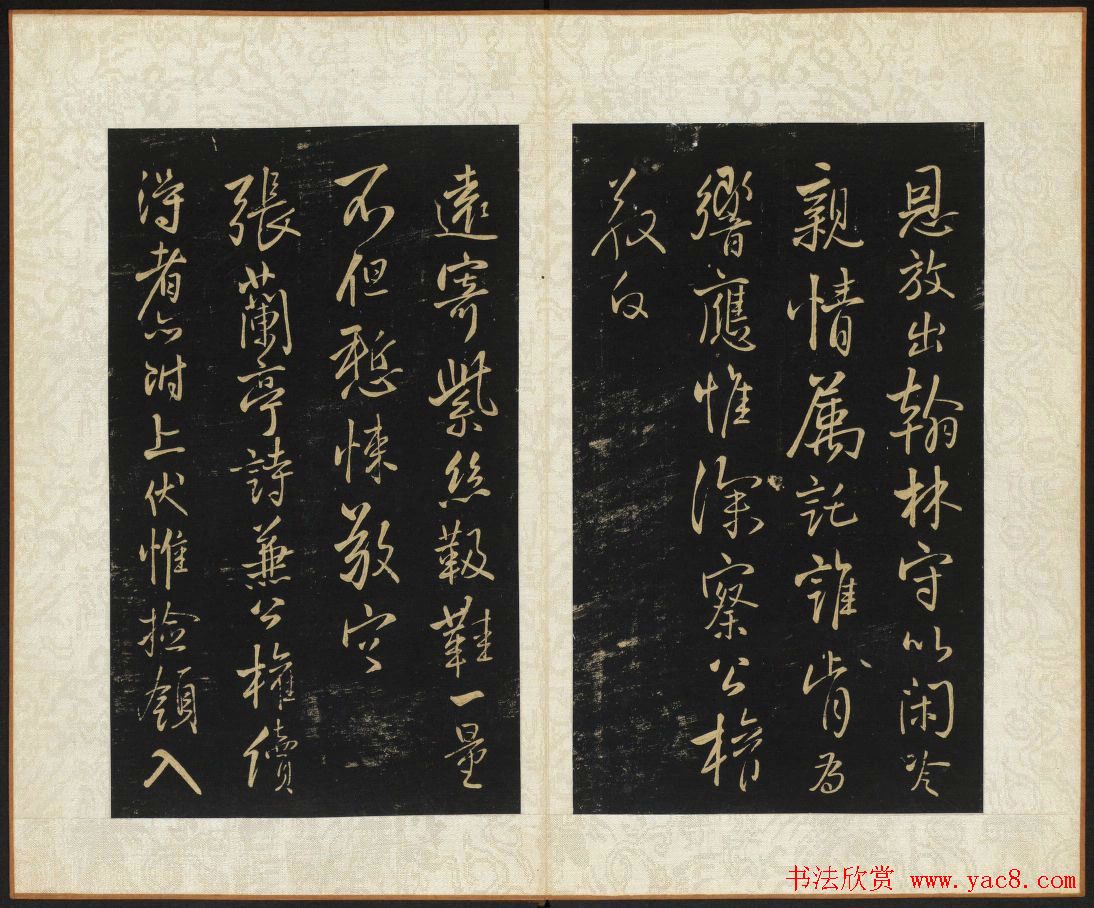 恩放出翰林守以闲冷
親情属託誰肯為
響應惟深察公權
敬白
遠寄紫絲靸鞋一量
不但慙悚敬空
張蘭亭詩兼公權續
得者亦附上伏惟撿領入
书法欣赏 www.yac8.com